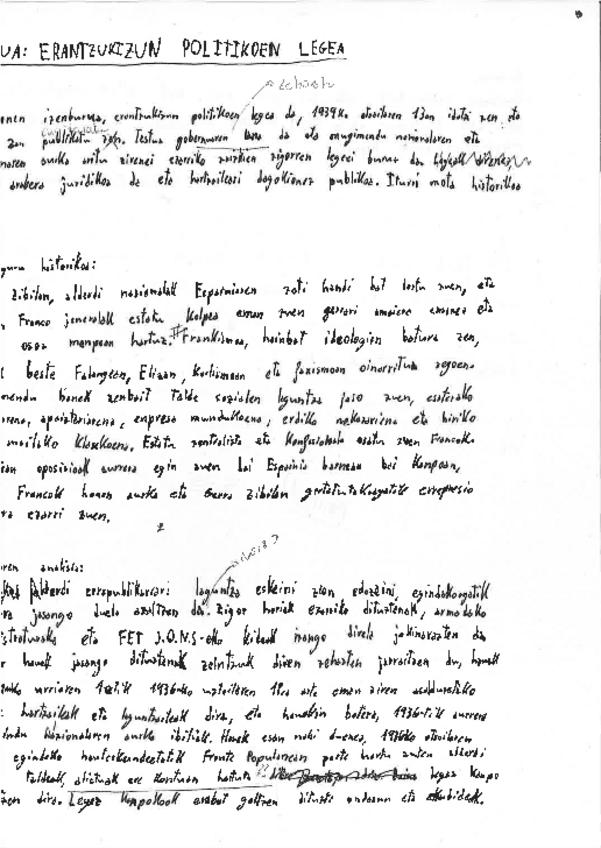 UA: ERANTZUKIZUN POLITIKOEN LEGEA
zehaztu
onen izenburua, erantzukizun politikoen legea da, 1939ko otsailaren 13an idatzi zen eta
zan publikatu zen. Testua gobernuaren da eta mugimendu nazionalaren eta
naren aurka aritu zirenei ezarriko zaizkien zigorren legeei buruz da
arabera juridikoa da eta hartzaileari dagokionez publikoa. Iturri mota historikoa
guru historikoa:
Zibilan, alderdi nazionalak Espainiaren zati handi bat lortu zuen, eta
Franco jeneralak estatu kolpea eman zuen gerrari amaiera emanez eta
osoa menpean hartuz. Frankismoa, hainbat ideologien batura zen,
beste Falangean, Elizan, Karlismoan eta faxismoan oinarritua zegoen.
mendu honek zenbait talde sozialen laguntza jaso zuen, esaterako
rena, apaizteriarena, enpresa mundukoena, erdiko nekazariena eta hiriko
mailako klasekoena. Estatu zentralista eta konfesionala osatu zuen Francok.
oposizioak aurrera egin zuen bai Espainia barnean bai kanpoan,
Francok honen aurka eta Gerra Zibilan gertatutakoagatik errepresio
ra ezarri zuen.
2
ren analisia:
alderdi errepublikarrari laguntza eskeini zion edozeini, egindakoagatik
jasango duela azaltzen da. Zigor horiek ezarriko dituztenak, armadako
istraturako eta FET J.O.N.S-eko kideak izango direla jakinarazten da
hauek jasango dituztenak zeintzuk diren zehazten jarraitzen du, hauek
urriaren 1etik 1936-ko uztailaren 18ra arte eman ziren
hartzaileak eta laguntzaileak dira, eta hauekin batera, 1936-tik aurrera
Nazionalaren aurka ibiliak. Honek esan nahi duenez, 1936ko otsailaren
egindako hauteskundeetatik Fronte Popularrean parte hartu zuten alderdi
taldeak, aliatuak ere kontuan hartuta legez kanpo
zen dira. Legez kanpokoak arabat galtzen dituzte ondasun eta eskubideak.